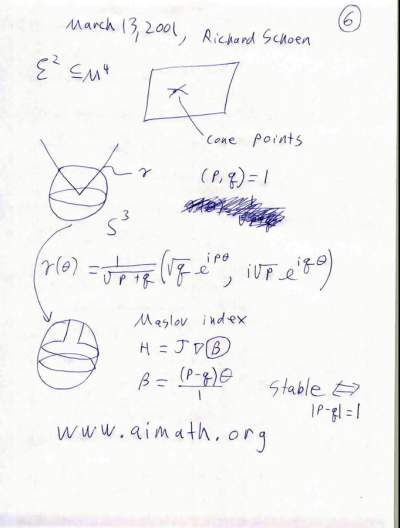 6
March 13, 2001, Richard Schoen
Σ² ⊆ M⁴
cone points
γ
(p, q) = 1
S³
γ(θ) = 1/√p+q (√q e^ipθ, i√p e^iqθ)
Maslov index
H = J∇β
β = (p-q)θ/1
Stable ⇔
|p-q| = 1
www.aimath.org